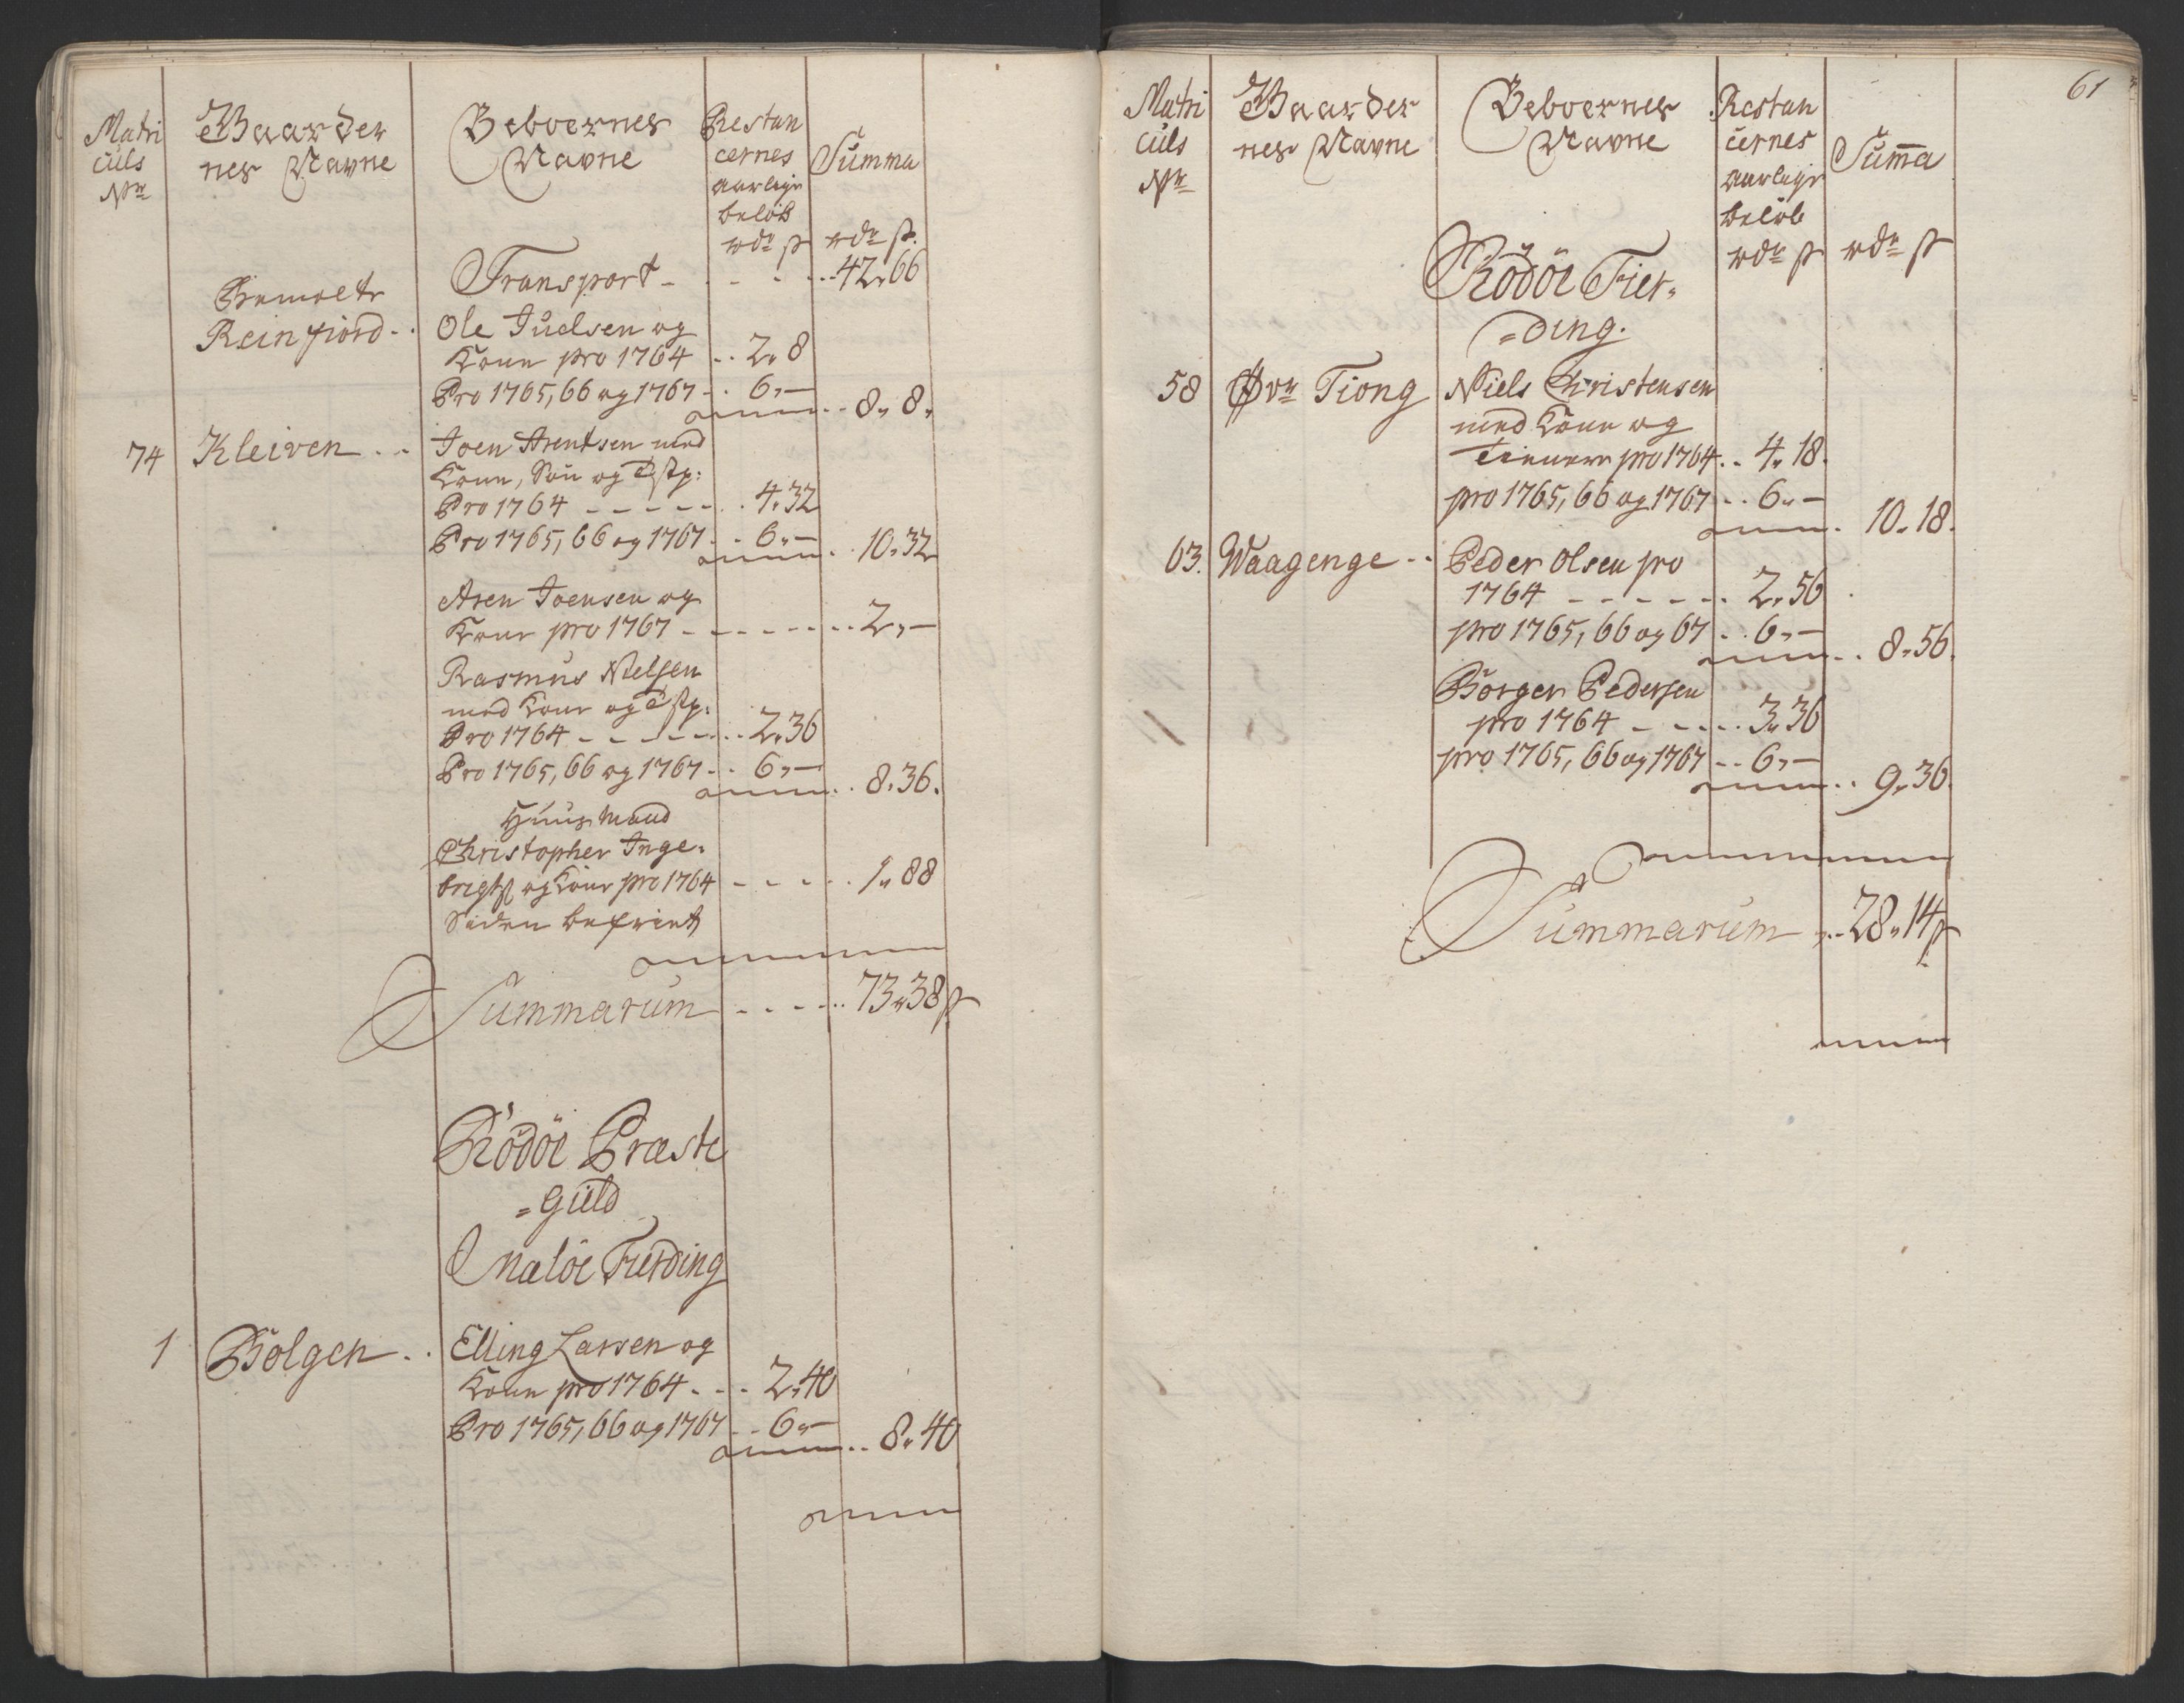 Matri
culs
Nr
Gaarder
nes Navne
Beboernes
Navne
Restan
cernes
aarlige
beløb
rdr ß
Summa
rdr ß.
Transport - - - - 42„66
Reinfiord - . Ole Juelsen og
Kone pro 1764 . . 2„8
Pro 1765, 66 og 1767 . . 6„—
8„8„
74 Kleiven . . Joen Arentsen med
Kone, Søn og
Pro 1764 - - - - - . 4„32
Pro 1765, 66 og 1767 . . 6„—
10„32
Aren Joensen og
Kone pro 1767 - - - - - - - . . 2„—
Rasmus Nielsen
med Kone og
Pro 1764 - - - - - . . 2„36
Pro 1765, 66 og 1767 . . 6„—
8„36.
Huusmand
Christopher Inge„
brigts og Kone pro 1764 - - - - . 1„88
Siden befriet
Summarum - - - - . . 73„38ß
Rödöe Præste
=Gield
Mælöe Fierding
1 Bolgen . . Elling Larsen og
Kone pro 1764 . . . 2„40
Pro 1765, 66 og 1767 . . 6„—
8„40
61
Matri
culs
Nr
Gaarder
nes Navne
Beboernes
Navne
Restan
cernes
aarlige
beløb
rdr ß
Summa
rdr ß
Rödöe Fier„
=ding.
58 Øvr Tiong Niels Christensen
med Kone og
Tienere pro 1764 . . 4„18.
pro 1765, 66 og 1767 . . 6„—
10„18.
63. Waagenge . . Peder Olsen pro
1764 - - - - - . 2„56
pro 1765, 66 og 67 . . 6„—
8„56.
Børger Pedersen
pro 1764 - - - . . 3„36
pro 1765, 66 og 1767 . . 6„—
9„36.
Summarum . . 28„14ß